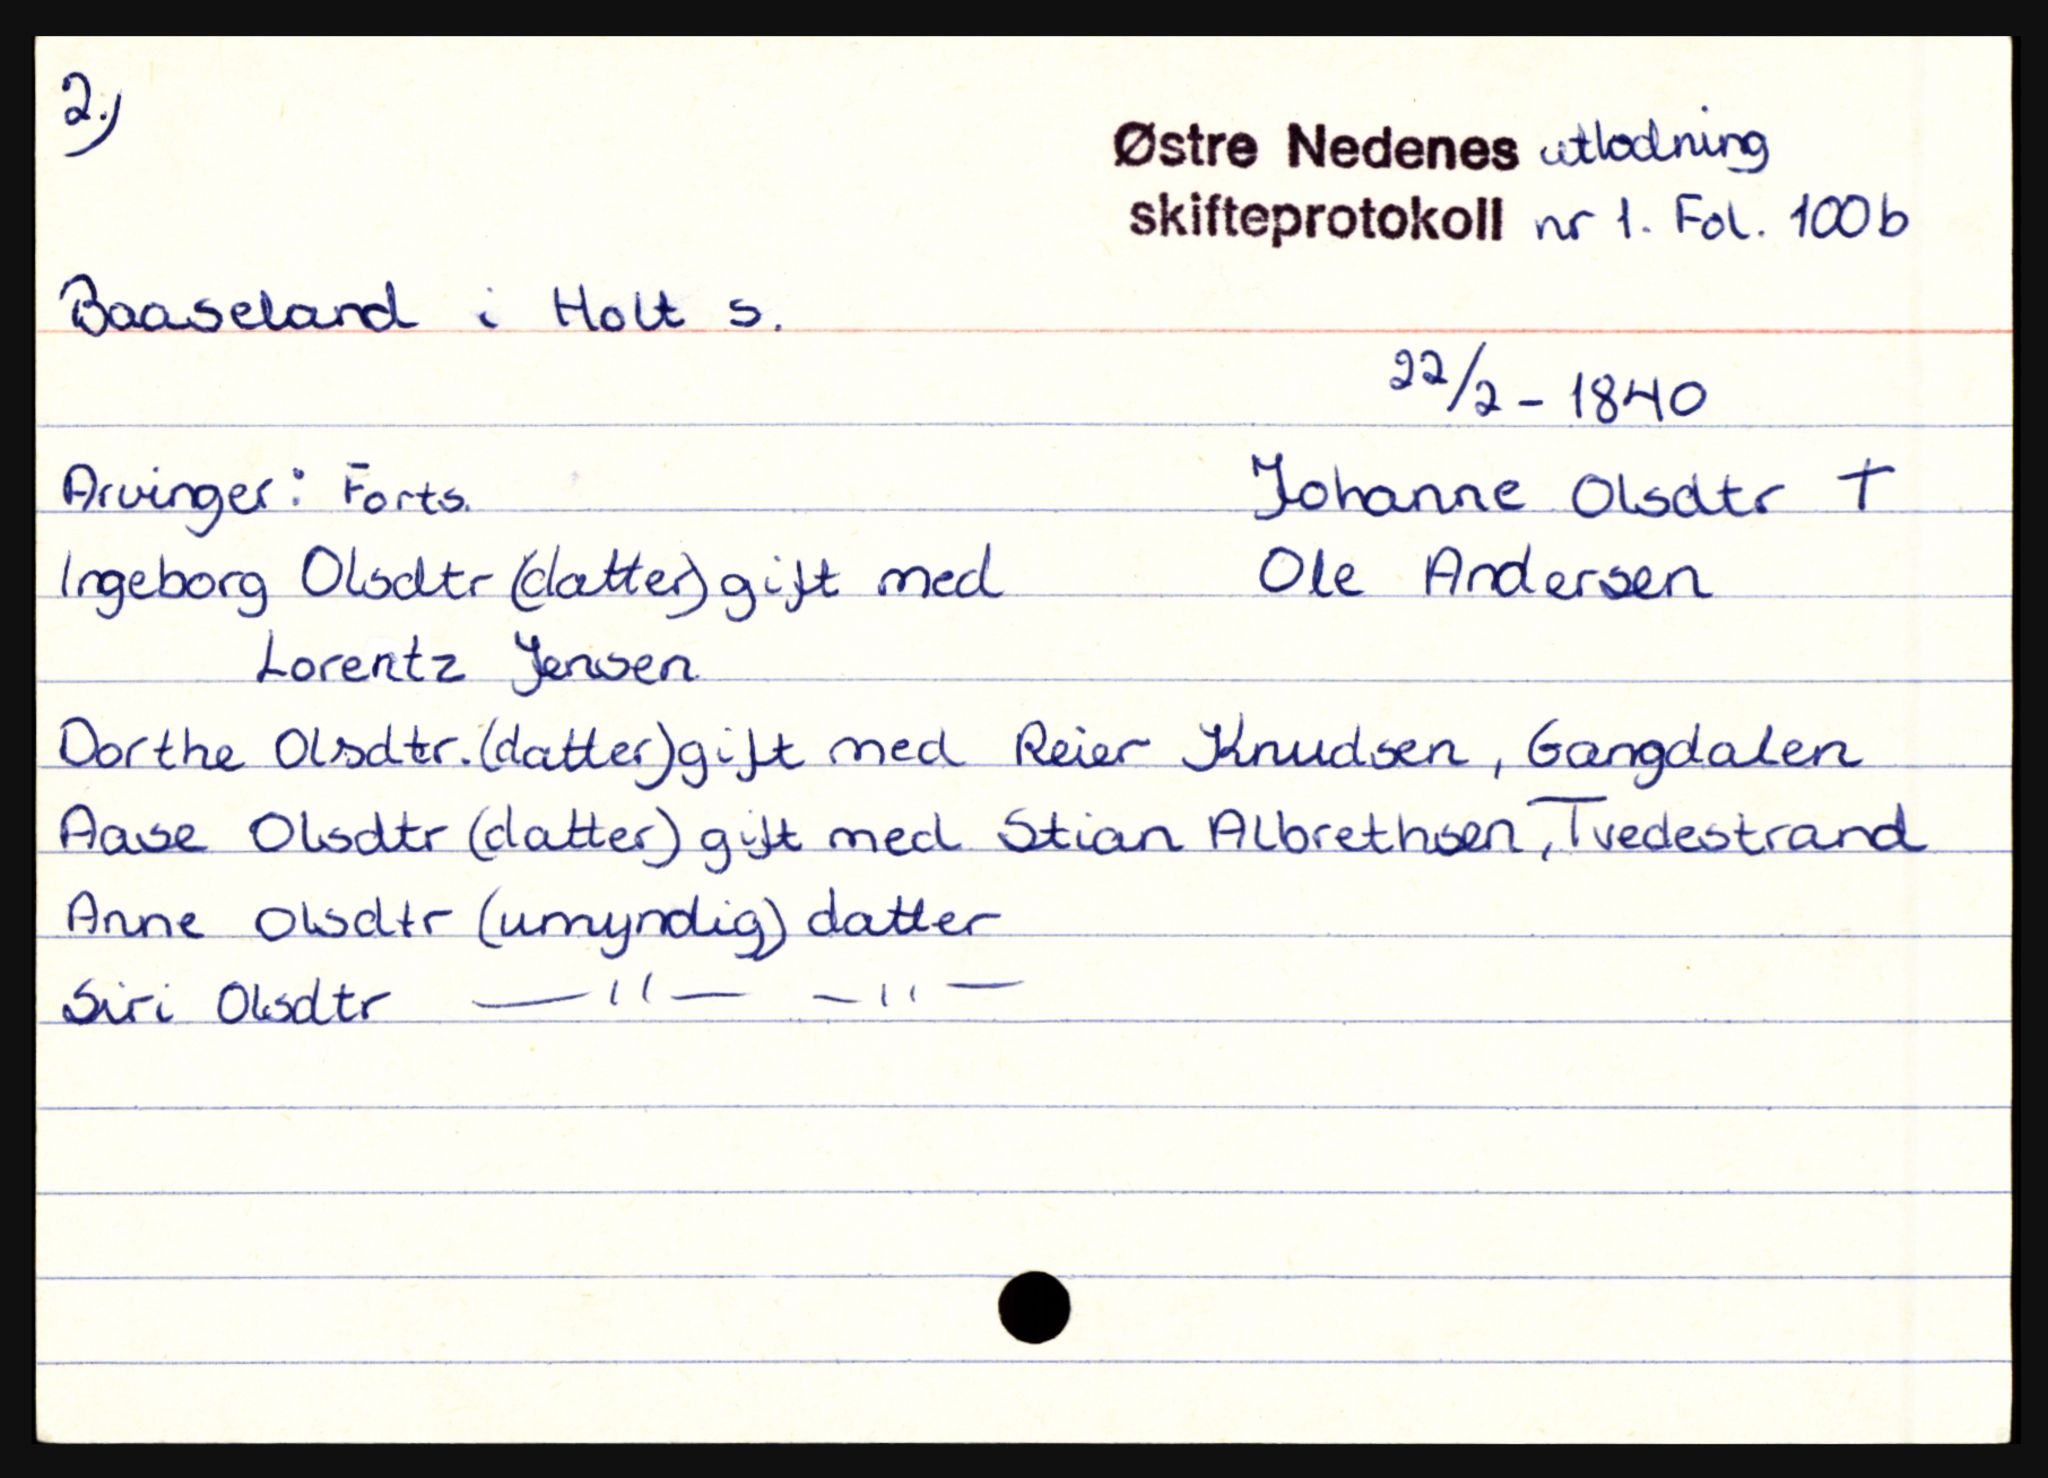 2.)
Østre Nedenes utlodning
skifteprotokoll nr 1. Fol. 100b
Baaseland i Holt s.
22/2 - 1840
Arvinger: Forts. Johanne Olsdtr †
Ingeborg Olsdtr (datter) gift med Ole Andersen
Lorentz Jensen
Dorthe Olsdtr. (datter) gift med Reier Knudsen, Gangdalen
Aase Olsdtr (datter) gift med Stian Albrethsen, Tvedestrand
Anne Olsdtr (umyndig) datter
Siri Olsdtr —"— —"—